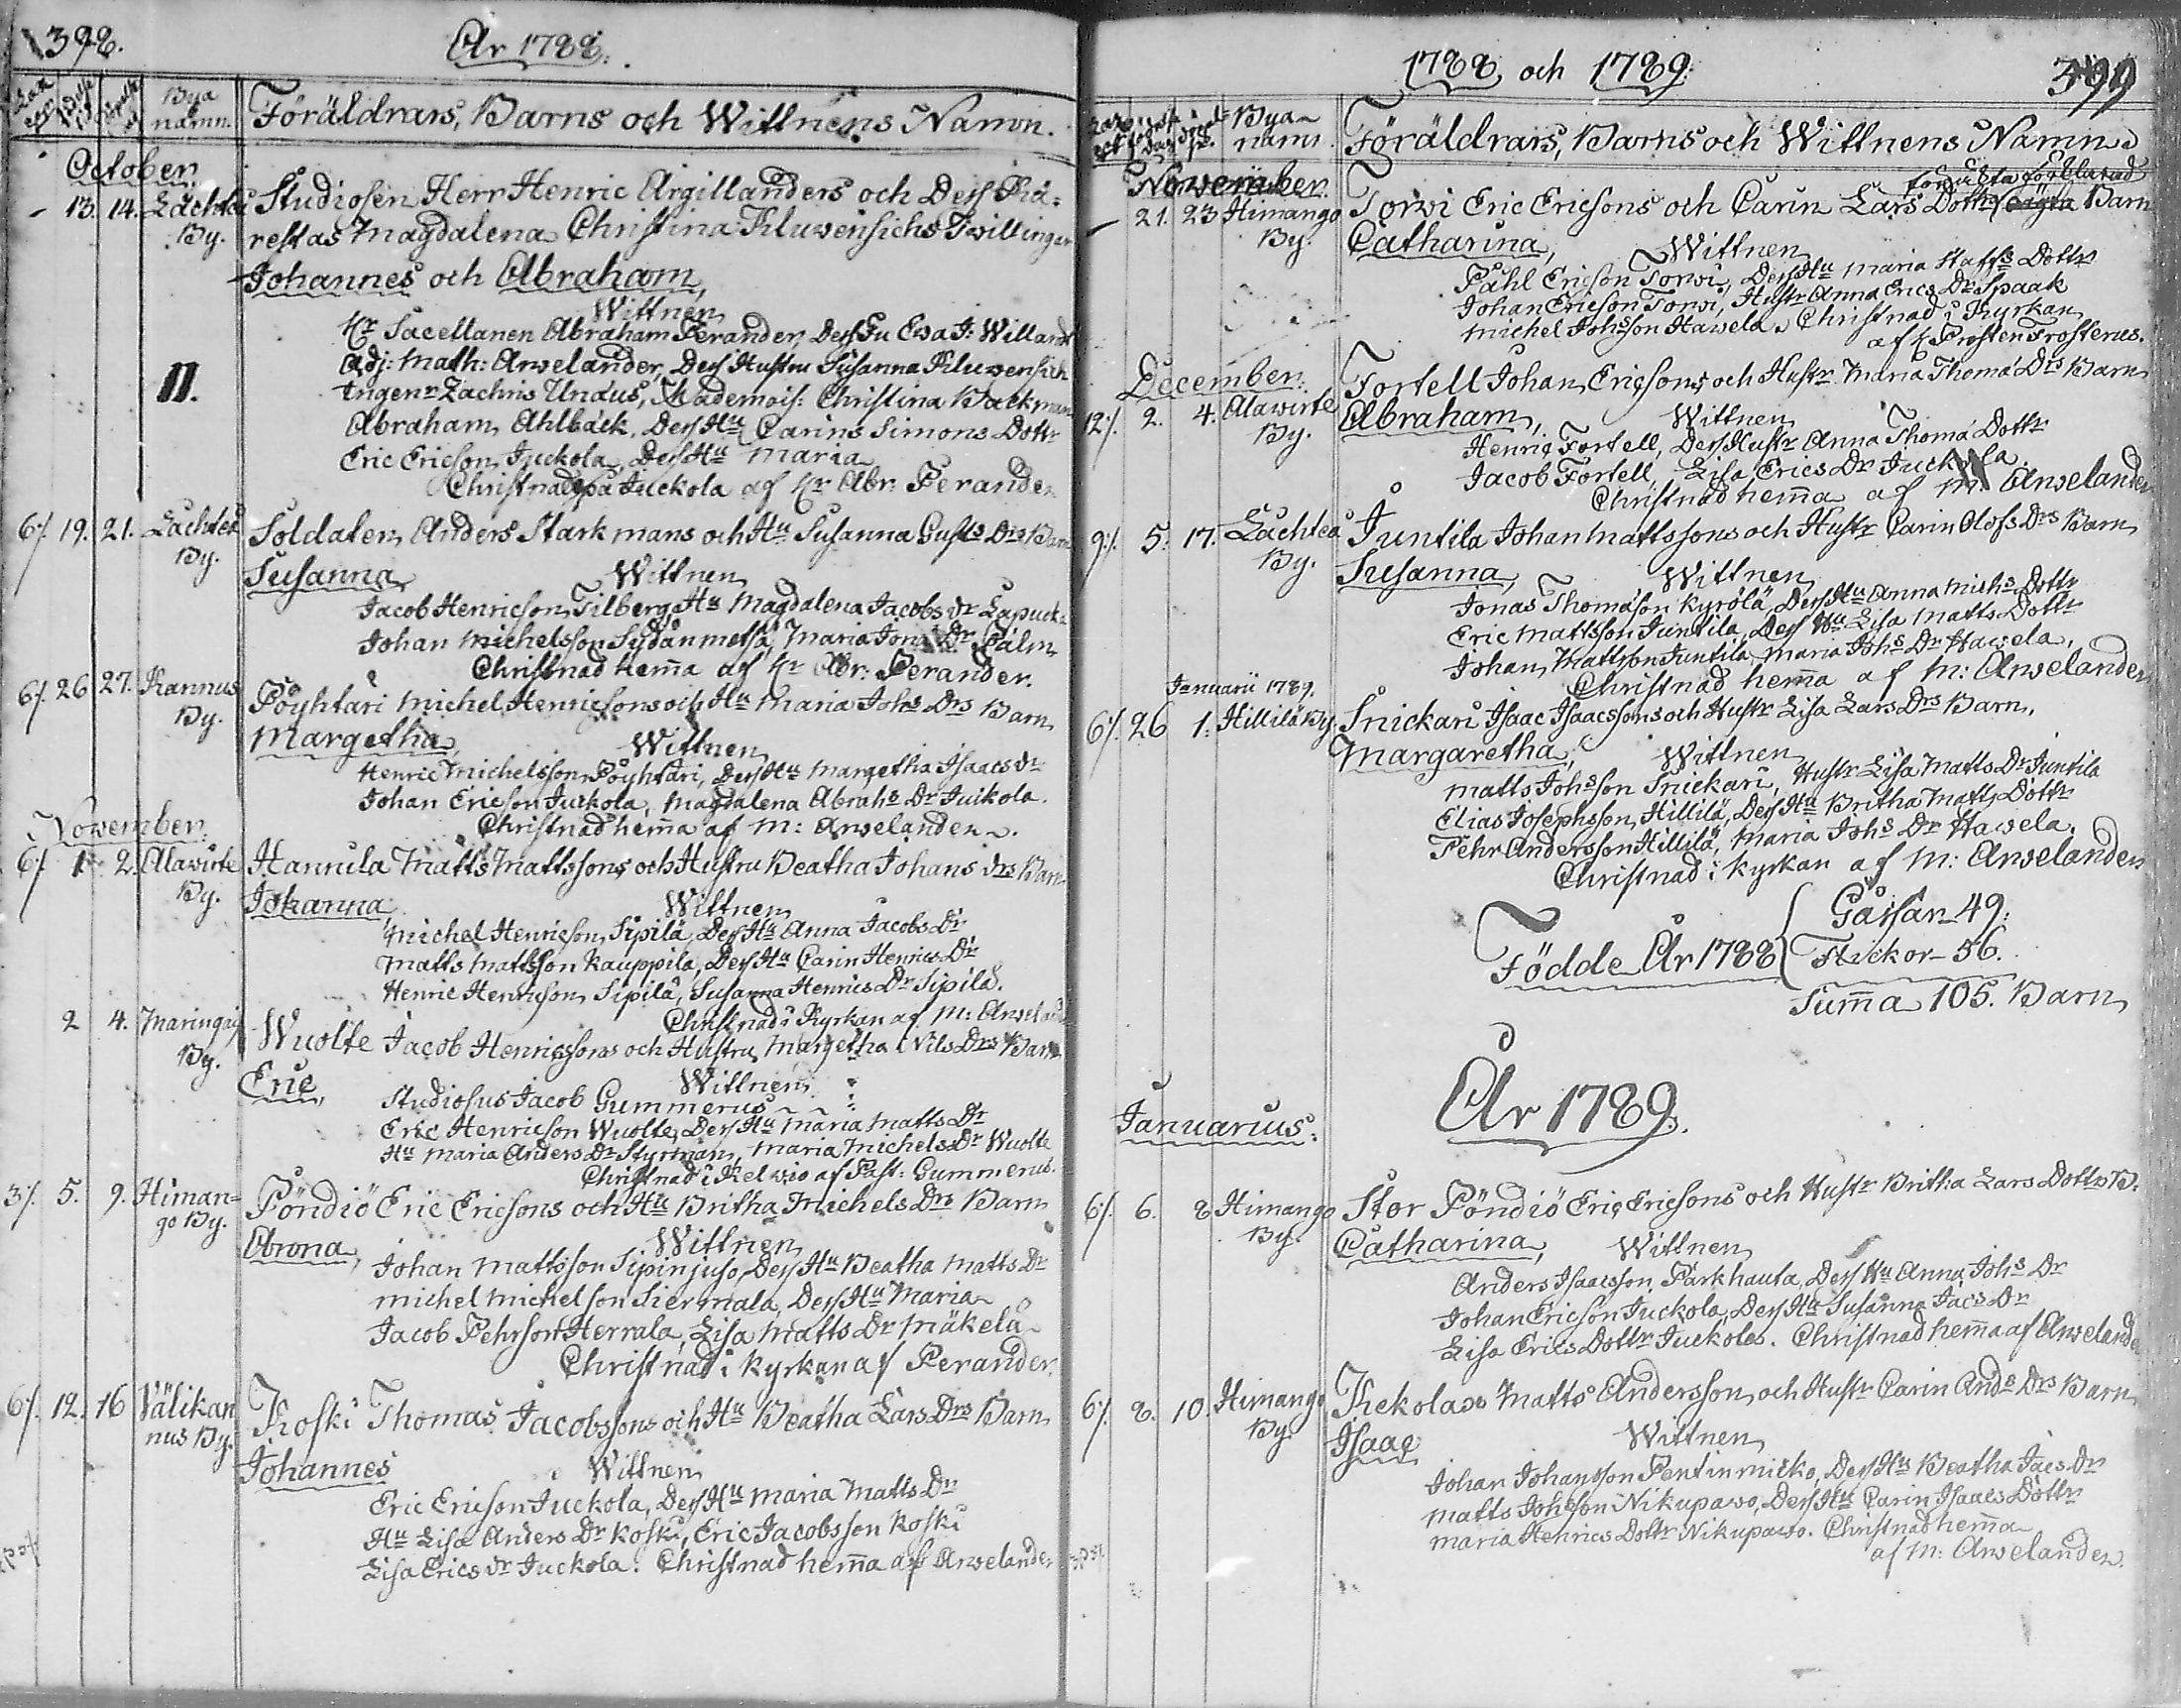 398.
År 1788.
Bya namn.
Föräldrars, Barns och Wittnens Namn.
October.
13. 14. Lachtea By.
Studiosen Herr Henric Argillanders och Dess Kiä-
restas Magdalena Christina Kluwensichs Twillingar
Johannes och Abraham,
Wittnen
Hr Sacellanen Abraham Perander, Dess Fru Ewa J: Willandt
Adj: Math: Anwelander, Dess Hustru Susanna Kluwensich
Ingenr Zachris Unæus, Mademois: Christina Backman
Abraham Ahlbäck, Dess Hu Carins Simons Dottr
II.
Eric Ericson Juckola, Dess Hu Maria
Christnad på Juckola af Hr Abr: Perander
6/. 19. 21. Lachtea By.
Soldaten Anders Starkmans och Hu Susanna Gusts Drs Barn
Susanna,
Wittnen
Jacob Henricson Tilberg, Hu Magdalena Jacobs Dr
Johan Michelsson Sydänmetsä, Maria Dr Palm
Christnad hem̄a af Hr Abr: Perander.
6/. 26 27. Kannus By.
Pöyhtäri Michel Henricsons och Hu Maria Johs Drs Barn
Margetha,
Wittnen
Henric Michelsson Pöyhtäri, Dess Hu Margetha Isaacs Dr
Johan Ericson Juckola, Magdalena Abrahs Dr Juckola.
Christnad hem̄a af M: Anwelander.
November.
6/. 1. 2. Alawirte By.
Hannila Matts Mattssons och Hustru Beatha Johans Drs Barn
Johanna,
Wittnen
Michel Henricson Sipilä, Dess Hu Anna Jacobs Dr
Matts Mattsson Kauppila, Dess Hu Carin Henrics Dr
Henric Henricson Sipilä, Susanna Henrics Dr Sipilä.
Christnad i Kyrkan af M: Anweland
2 4. Maringais By.
Wuolte Jacob Henricssons och Hustru Margetha Nils Drs Barn
Eric,
Wittnen
Studiosus Jacob Gummerus
Eric Henricson Wuolte, Dess Hu Maria Matts Dr
Hu Maria Anders Dr Styrman, Maria Michels Dr Wuolte
Christnad i Kelwio af Past: Gummerus.
3/. 5. 9. Himan-
go By.
Pöndiö Eric Ericsons och Hu Britha Michels Drs Barn
Anna,
Wittnen
Johan Mattsson Sipinjuso, Dess Hu Beatha Matts Dr
Michel Michelson Siermala, Dess Hu Maria
Jacob Pehrson Herrala, Lisa Matts Dr Mäkelä
Christnad i Kyrkan af Perander.
6/. 12. 16 Välikan
nus By.
Koski Thomas Jacobssons och Hu Beatha Lars Drs Barn
Johannes
Wittnen
Eric Ericson Juckola, Dess Hu Maria Matts Dr
Hu Lisa Anders Dr Koski, Eric Jacobsson Koski
Lisa Erics Dr Juckola. Christnad hem̄a af Anwelander
1788, och 1789.
399
Bya namn.
Föräldrars, Barns och Wittnens Namn
November.
21. 23 Himango By.
Torwi Eric Ericsons och Carin Lars Dotters oägta Barn
Catharina,
Wittnen
Påhl Ericson Torwi, Dess Hu Maria Staffs Dottr
Johan Ericson Torwi, Hustr Anna Erics Dr Spaak
Michel Johsson Hawela. Christnad i Kyrkan
af Prosten Frosterus.
December.
12/. 2. 4. Alawirte By.
Fortell Johan Ericsons och Hustr Maria Thoma Drs Barn
Abraham,
Wittnen
Henric Fortell, Dess Hustr Anna Thoma Dottr
Jacob Fortell, Lisa Erics Dr Juckola
Christnad hem̄a af M: Anwelander
9/. 5. 17. Lachtea By.
Juntila Johan Mattssons och Hustr Carin Olofs Drs Barn
Susanna,
Wittnen
Jonas Thomason Kyrölä, Dess Hu Anna Michs Dottr
Eric Mattsson Juntila, Dess Hu Lisa Matts Dottr
Johan Mattsson Juntila, Maria Johs Dr Hawela.
Christnad hem̄a af M: Anwelander
Januarii 1789.
6/. 26 1. Hillilä By.
Snickari Isaac Isaacssons och Hustr Lisa Lars Drs Barn
Margaretha,
Wittnen
Matts Johsson Snickari, Hustr Lisa Matts Dr Juntila
Elias Josephsson Hillilä, Dess Hu Britha Matts Dottr
Pehr Andersson Hillilä, Maria Johs Dr Hawela.
Christnad i Kyrkan af M: Anwelander
Födde År 1788
Gåssar 49.
Flickor 56.
Sum̄a 105. Barn
År 1789.
Januarius.
6/. 6. 8 Himango By.
Stor Pöndiö Eric Ericsons och Hustr Britha Lars Dottrs B:
Catharina,
Wittnen
Anders Isaacsson Parkhauta, Dess Hu Anna Johs Dr
Johan Ericson Juckola, Dess Hu Susanna Jacs Dr
Lisa Erics Dottr Juckola. Christnad hem̄a af Anwelander
6/. 8. 10. Himango By.
Kekolax Matts Andersson och Hustr Carin Ands Drs Barn
Isaac
Wittnen
Johan Johansson Pentinmicko, Dess Hu Beatha Jacs Dr
Matts Johsson Nikupawo, Dess Hu Carin Isaacs Dottr
Maria Henrics Dottr Nikupawo. Christnad hem̄a
af M: Anwelander.